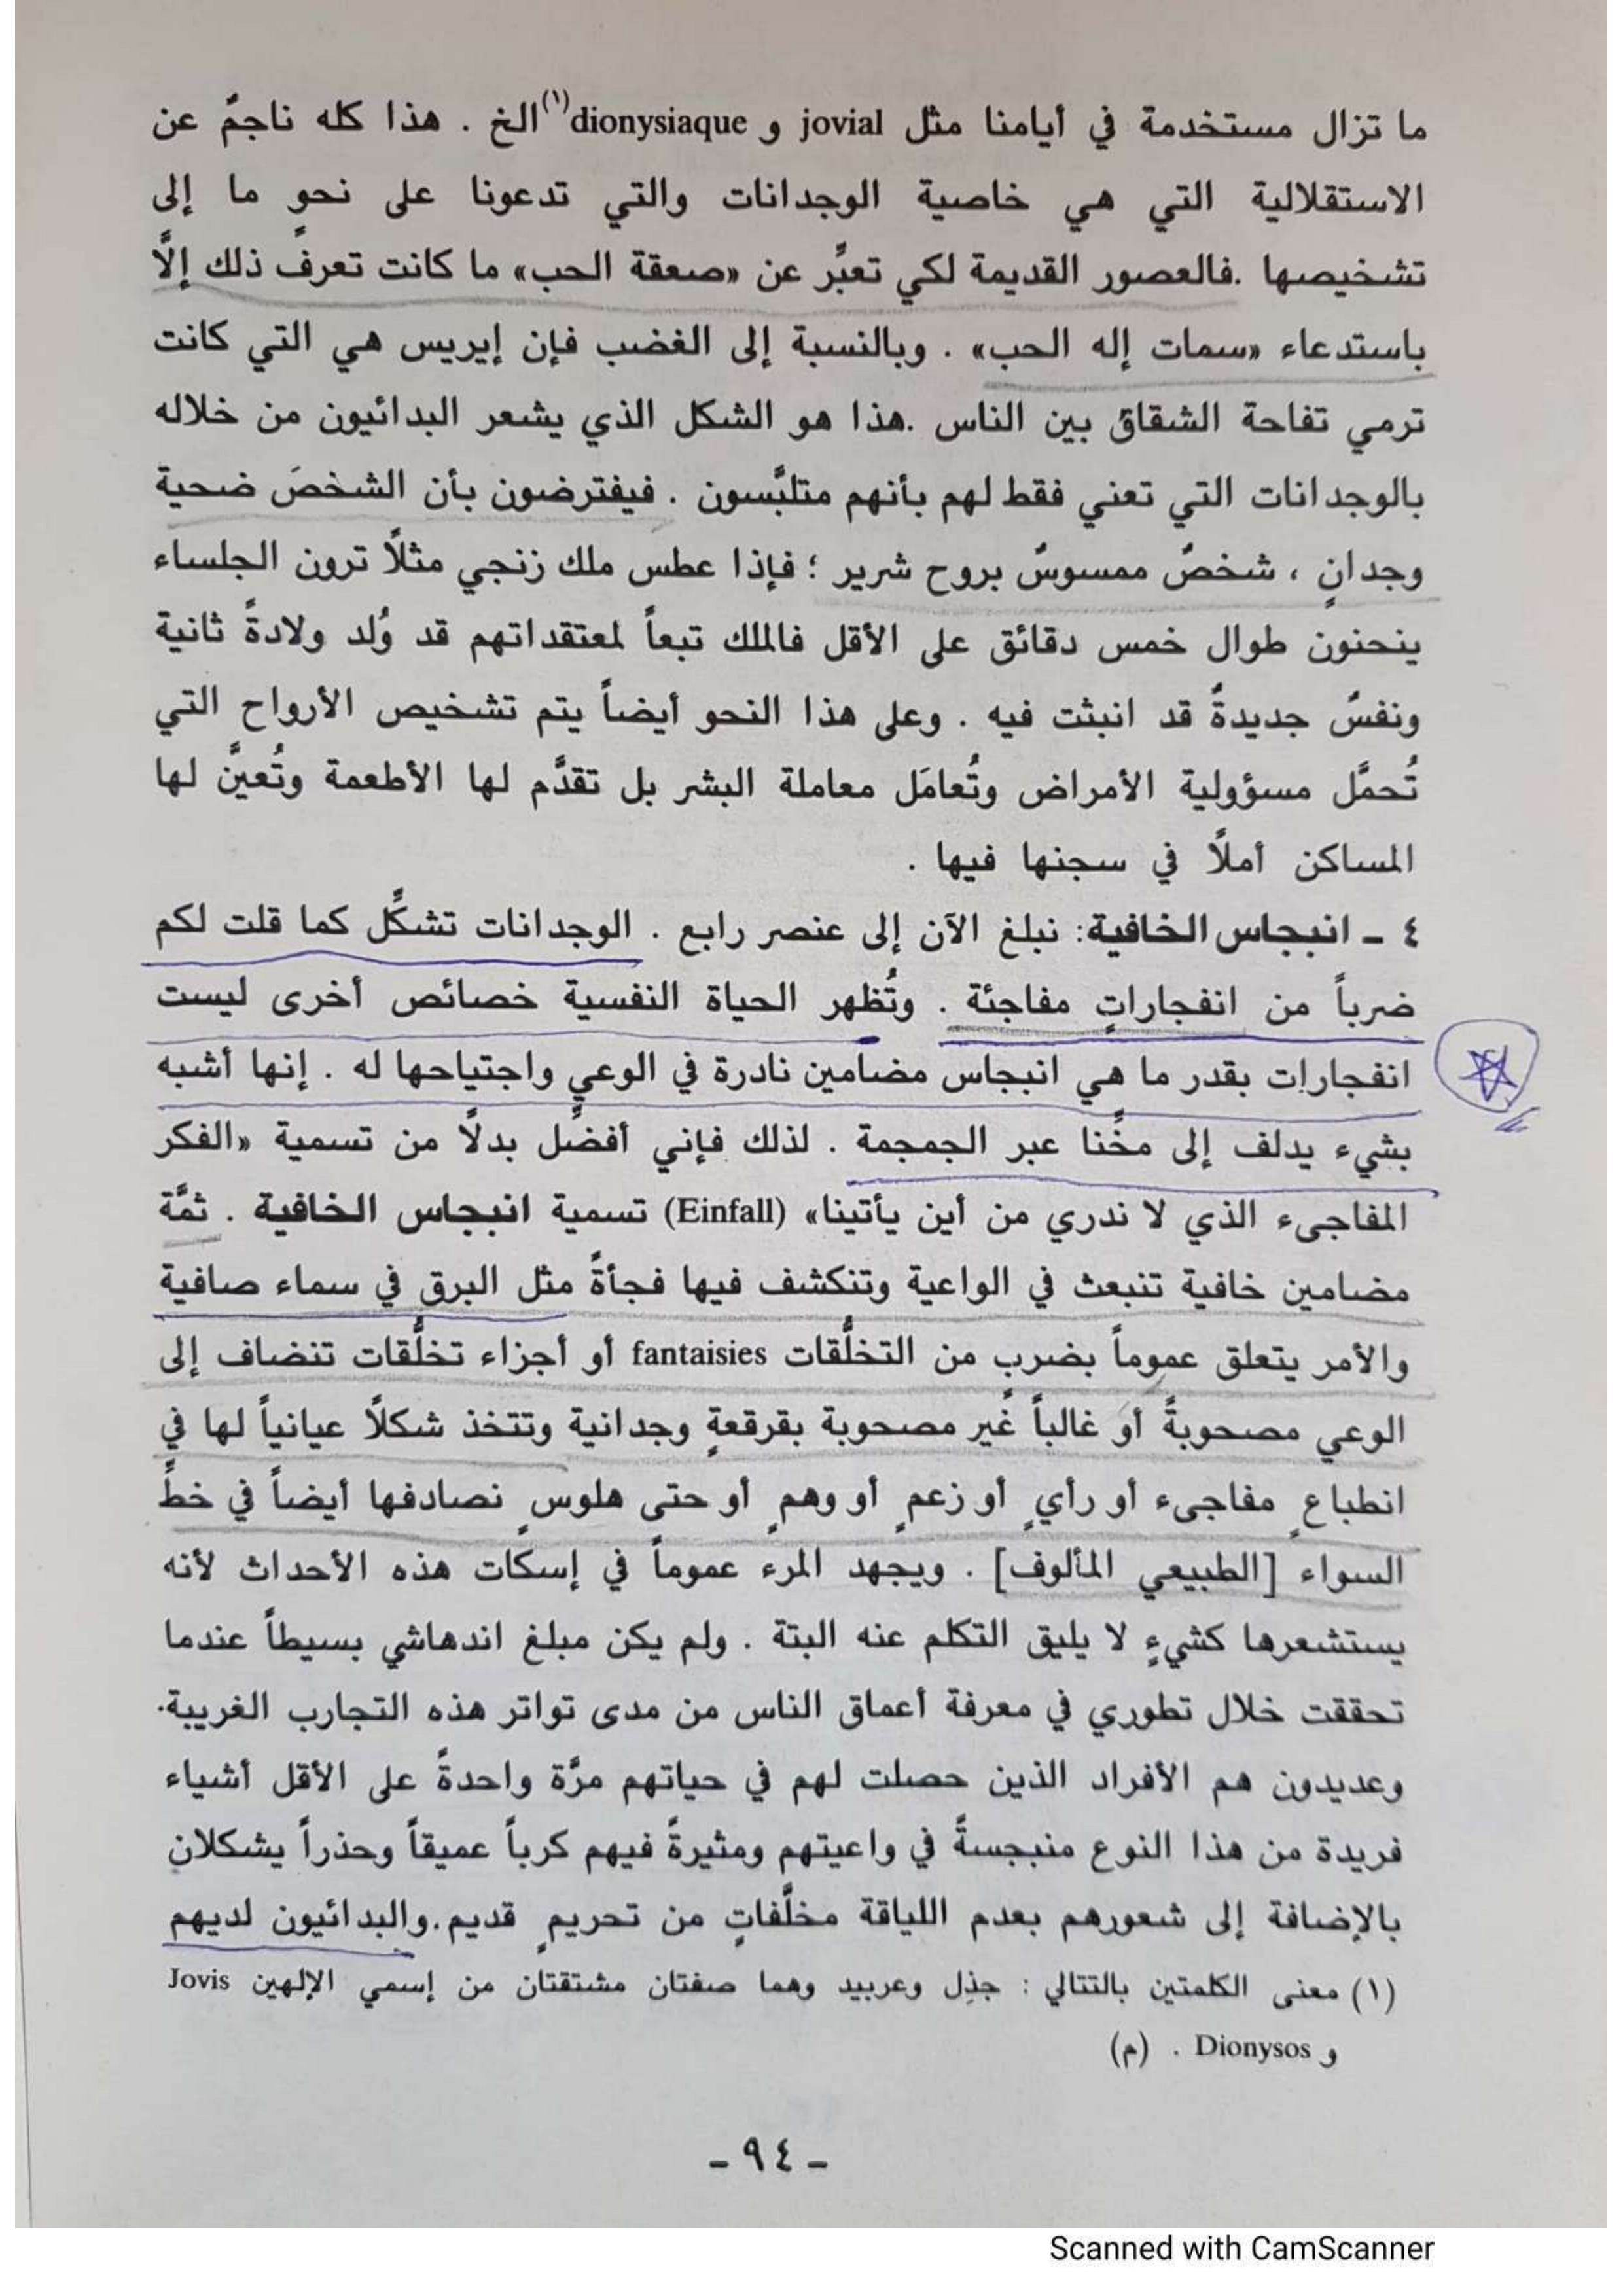 ما تزال مستخدمة في أيامنا مثل jovial و dionysiaque(١) الخ . هذا كله ناجمٌ عن
الاستقلالية التي هي خاصية الوجدانات والتي تدعونا على نحوٍ ما إلى
تشخيصها .فالعصور القديمة لكي تعبِّر عن «صعقة الحب» ما كانت تعرف ذلك إلَّا
باستدعاء «سمات إله الحب» . وبالنسبة إلى الغضب فإن إيريس هي التي كانت
ترمي تفاحة الشقاق بين الناس .هذا هو الشكل الذي يشعر البدائيون من خلاله
بالوجدانات التي تعني فقط لهم بأنهم متلبَّسون . فيفترضون بأن الشخصَ ضحية
وجدانٍ ، شخصٌ ممسوسٌ بروح شرير ؛ فإذا عطس ملك زنجي مثلًا ترون الجلساء
ينحنون طوال خمس دقائق على الأقل فالملك تبعاً لمعتقداتهم قد وُلد ولادةً ثانية
ونفسٌ جديدةٌ قد انبثت فيه . وعلى هذا النحو أيضاً يتم تشخيص الأرواح التي
تُحمَّل مسؤولية الأمراض وتُعامَل معاملة البشر بل تقدَّم لها الأطعمة وتُعينَّ لها
المساكن أملًا في سجنها فيها .
٤ ـ انبجاس الخافية: نبلغ الآن إلى عنصر رابع . الوجدانات تشكِّل كما قلت لكم
ضرباً من انفجاراتٍ مفاجئة . وتُظهر الحياة النفسية خصائص أخرى ليست
انفجارات بقدر ما هي انبجاس مضامين نادرة في الوعي واجتياحها له . إنها أشبه
بشيء يدلف إلى مخِّنا عبر الجمجمة . لذلك فإني أفضِّل بدلًا من تسمية «الفكر
المفاجىء الذي لا ندري من أين يأتينا» (Einfall) تسمية انبجاس الخافية . ثمَّة
مضامين خافية تنبعث في الواعية وتنكشف فيها فجأةً مثل البرق في سماء صافية
والأمر يتعلق عموماً بضرب من التخلُّقات fantaisies أو أجزاء تخلُّقات تنضاف إلى
الوعي مصحوبةً أو غالباً غير مصحوبة بقرقعةٍ وجدانية وتتخذ شكلًا عيانياً لها في
انطباعٍ مفاجىء أو رأيٍ أو زعمٍ أو وهمٍ أو حتى هلوسٍ نصادفها أيضاً في خطِّ
السواء [الطبيعي المألوف] . ويجهد المرء عموماً في إسكات هذه الأحداث لأنه
يستشعرها كشيءٍ لا يليق التكلم عنه البتة . ولم يكن مبلغ اندهاشي بسيطاً عندما
تحققت خلال تطوري في معرفة أعماق الناس من مدى تواتر هذه التجارب الغريبة.
وعديدون هم الأفراد الذين حصلت لهم في حياتهم مرَّة واحدةً على الأقل أشياء
فريدة من هذا النوع منبجسةً في واعيتهم ومثيرةً فيهم كرباً عميقاً وحذراً يشكلان
بالإضافة إلى شعورهم بعدم اللياقة مخلَّفاتٍ من تحريمٍ قديم.والبدائيون لديهم
(١) معنى الكلمتين بالتتالي : جذِل وعربيد وهما صفتان مشتقتان من إسمي الإلهين Jovis
و Dionysos . (م)
ـ ٩٤ ـ
Scanned with CamScanner